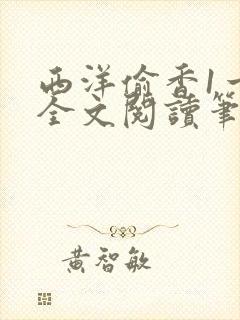 西洋偷香1一
全文閱讀筆
黃智敏